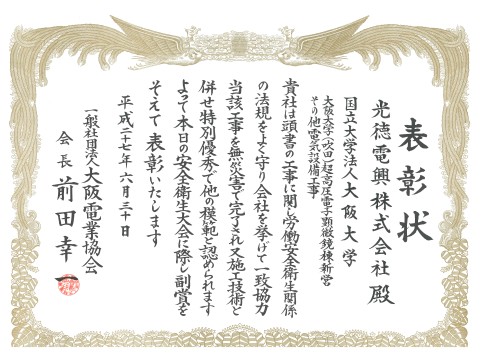 表彰状
光徳電興株式会社 殿
国立大学法人大阪大学
大阪大学(吹田)超高圧電子顕微鏡棟新営
その他電気設備工事
貴社は頭書の工事に関し労働安全衛生関係
の法規をよく守り会社を挙げて一致協力
当該工事を無災害で完了され又施工技術と
併せ特別優秀で他の模範と認められます
よって本日の安全衛生大会に際し副賞を
そえて表彰いたします
平成二十七年六月三十日
一般社団法人大阪電業協会
会長 前田幸一